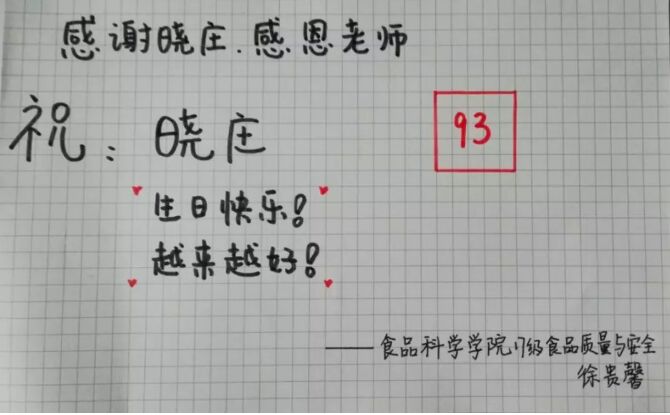 感谢晓庄.感恩老师
祝：晓庄
93
生日快乐！
越来越好！
——食品科学学院17级食品质量与安全
徐贵馨